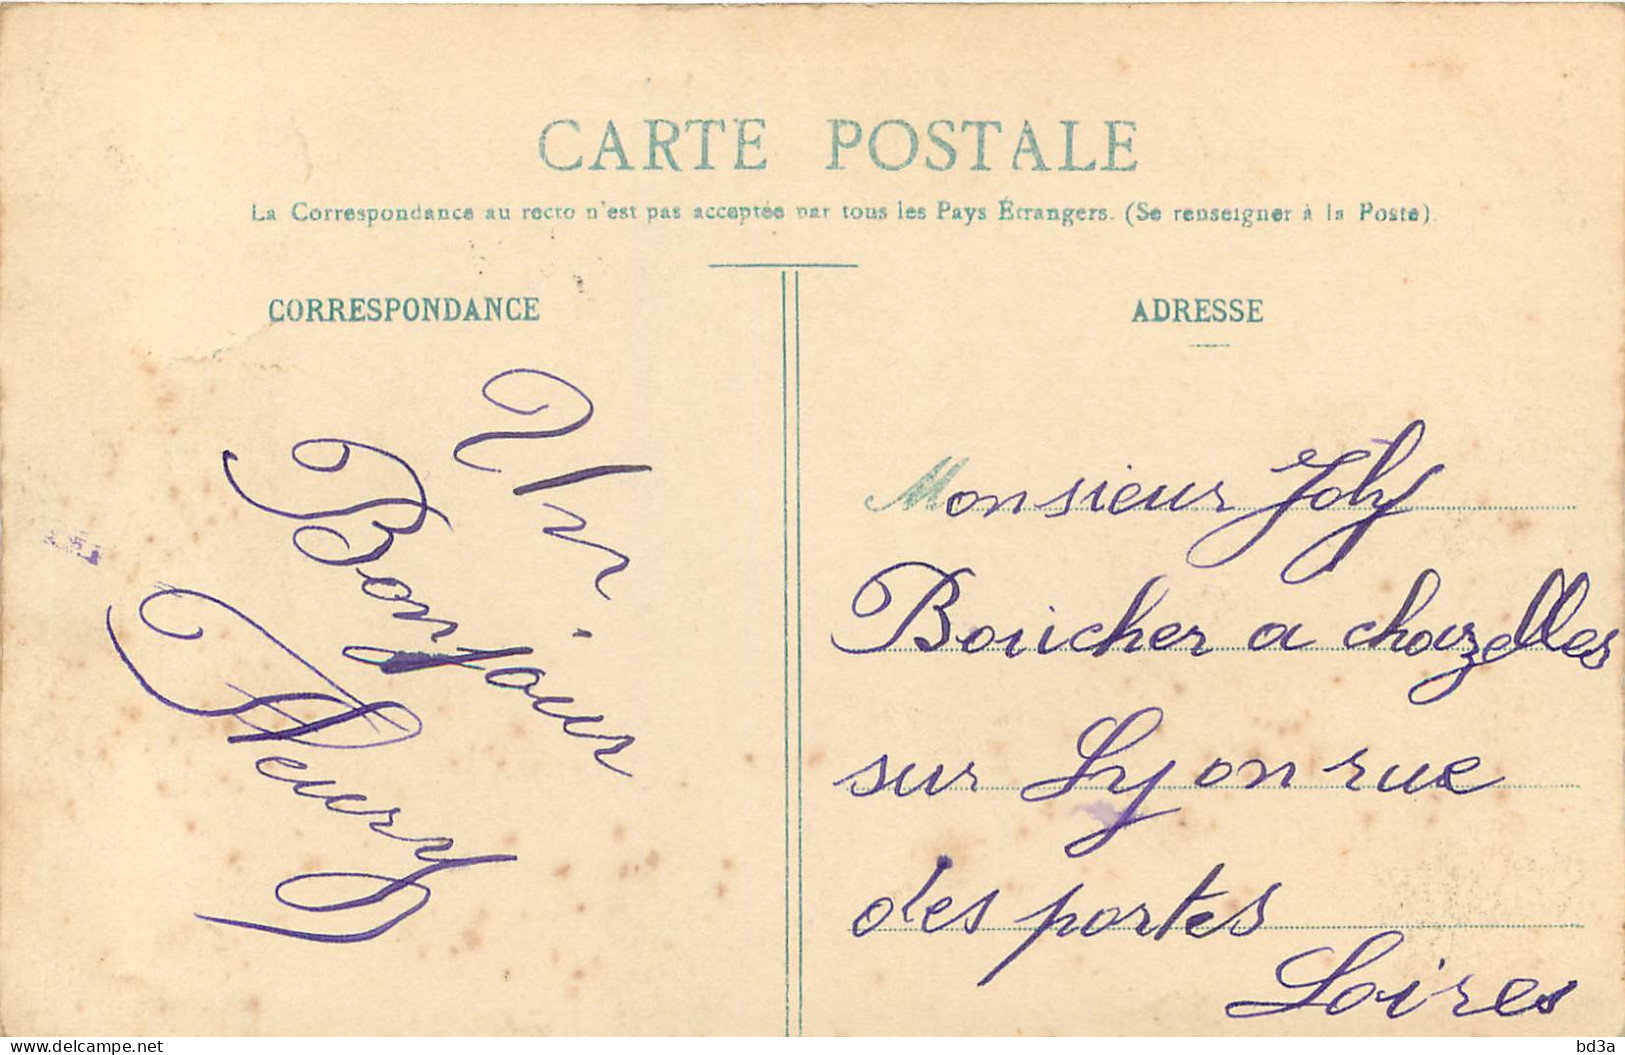 CARTE POSTALE
La Correspondance au recto n'est pas acceptée par tous les Pays Étrangers. (Se renseigner à la Poste)
CORRESPONDANCE
Un
Bonjour
Fleury
ADRESSE
Monsieur Joly
Boucher a chazelles
sur Lyon rue
des portes
Loires
delcampe.net
bd3a